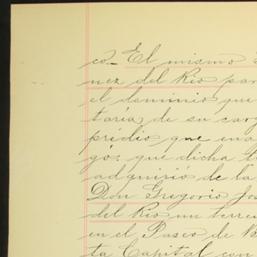 co- El mismo
nez del Rio par
el dominio que
taría, de su carg
predio que ena
gó: que dicha
adquirió de la
Don Gregorio Jos
del Rio un terre
en el Paseo de
ta Capital con